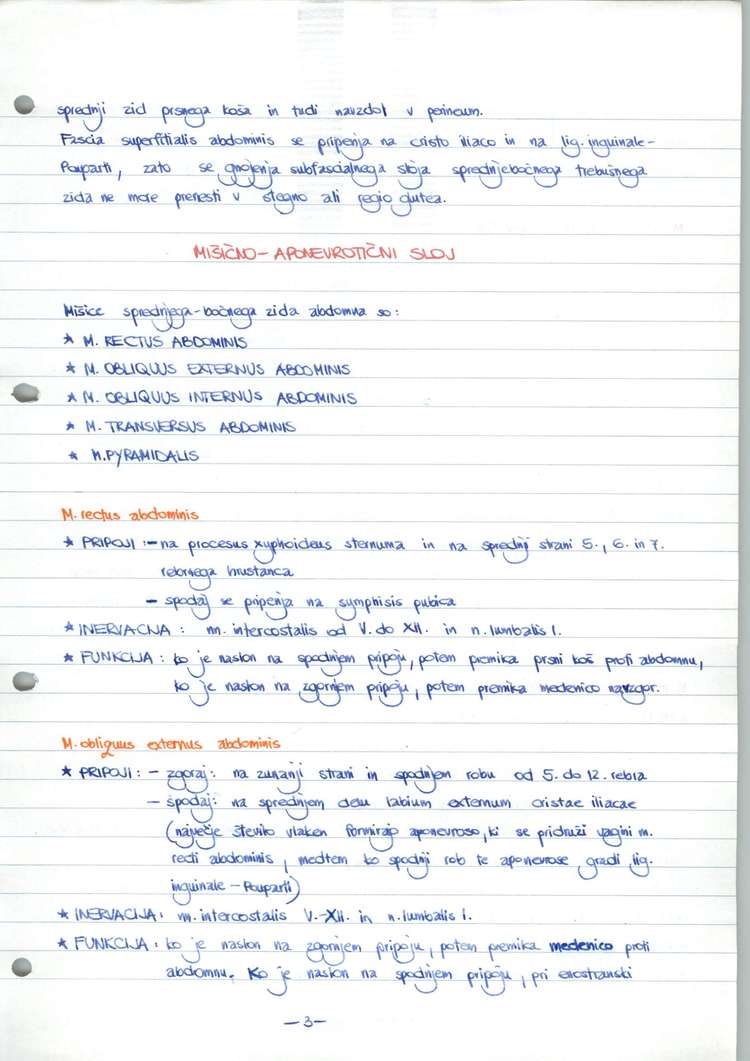 sprednji zid prsnega koša in tudi navzdol v perineum.
Fascia superfitialis abdominis se pripenja na cristo iliaco in na lig. inguinale -
Pouparti, zato se gnojenja subfascialnega sloja sprednjebočnega trebušnega
zida ne more prenesti v stegno ali regio glutea.
MIŠIČNO - APONEVROTIČNI SLOJ
Mišice sprednjega - bočnega zida abdomna so:
* M. RECTUS ABDOMINIS
* M. OBLIQUUS EXTERNUS ABDOMINIS
* M. OBLIQUUS INTERNUS ABDOMINIS
* M. TRANSVERSUS ABDOMINIS
* M. PYRAMIDALIS
M. rectus abdominis
* PRIPOJI : - na procesus xyphoideus sternuma in na sprednji strani 5., 6. in 7.
rebrnega hrustanca
- spodaj se pripenja na symphisis pubica
* INERVACIJA : nn. intercostalis od V. do XII. in n. lumbalis I.
* FUNKCIJA : ko je naslon na spodnjem pripoju, potem premika prsni koš proti abdomnu,
ko je naslon na zgornjem pripoju, potem premika medenico navzgor.
M. obliquus externus abdominis
* PRIPOJI : - zgoraj : na zunanji strani in spodnjem robu od 5. do 12. rebra
- spodaj : na sprednjem delu labium externum cristae iliacae
(največje število vlaken formirajo aponevroso, ki se pridruži vagini m.
recti abdominis, medtem ko spodnji rob te aponevrose gradi lig.
inguinale - Pouparti)
* INERVACIJA : nn. intercostalis V.-XII. in n. lumbalis I.
* FUNKCIJA : ko je naslon na zgornjem pripoju, potem premika medenico proti
abdomnu. Ko je naslon na spodnjem pripoju, pri enostranski
- 3 -